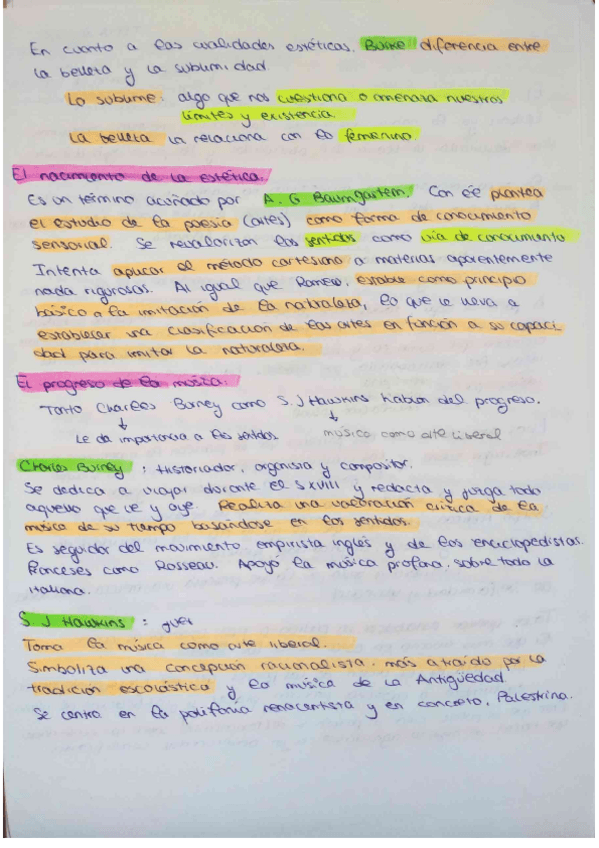 En cuanto a las cualidades estéticas, Burke diferencia entre
la belleza y la sublimidad.
Lo sublime: algo que nos cuestiona o amenaza nuestros
límites y existencia.
La belleza la relaciona con lo femenino.
El nacimiento de la estética.
Es un término acuñado por A. G Baumgartem. Con él plantea
el estudio de la poesía (artes) como forma de conocimiento
sensorial. Se revalorizan los sentidos como vía de conocimiento
Intenta aplicar el método cartesiano a materias aparentemente
nada rigurosas. Al igual que Rameau, estable como principio
básico a la imitación de la naturaleza, lo que le lleva a
establecer una clasificación de las artes en función a su capaci
dad para imitar la naturaleza.
El progreso de la música.
Tanto Charles Burney como S. J Hawkins hablan del progreso.
Le da importancia a los sentidos música como arte liberal
Charles Burney : Historiador, organista y compositor.
Se dedica a viajar durante el S XVIII y redacta y juzga todo
aquello que ve y oye. Realiza una valoración crítica de la
música de su tiempo basándose en los sentidos.
Es seguidor del movimiento empirista inglés y de los enciclopedistas
franceses como Rosseau. Apoyó la música profana, sobre todo la
italiana.
S. J Hawkins :
Toma la música como arte liberal.
Simboliza una concepción racionalista, más atraído por la
tradición escolástica y la música de la Antigüedad
Se centra en la polifonía renacentista y en concreto, Palestrina.